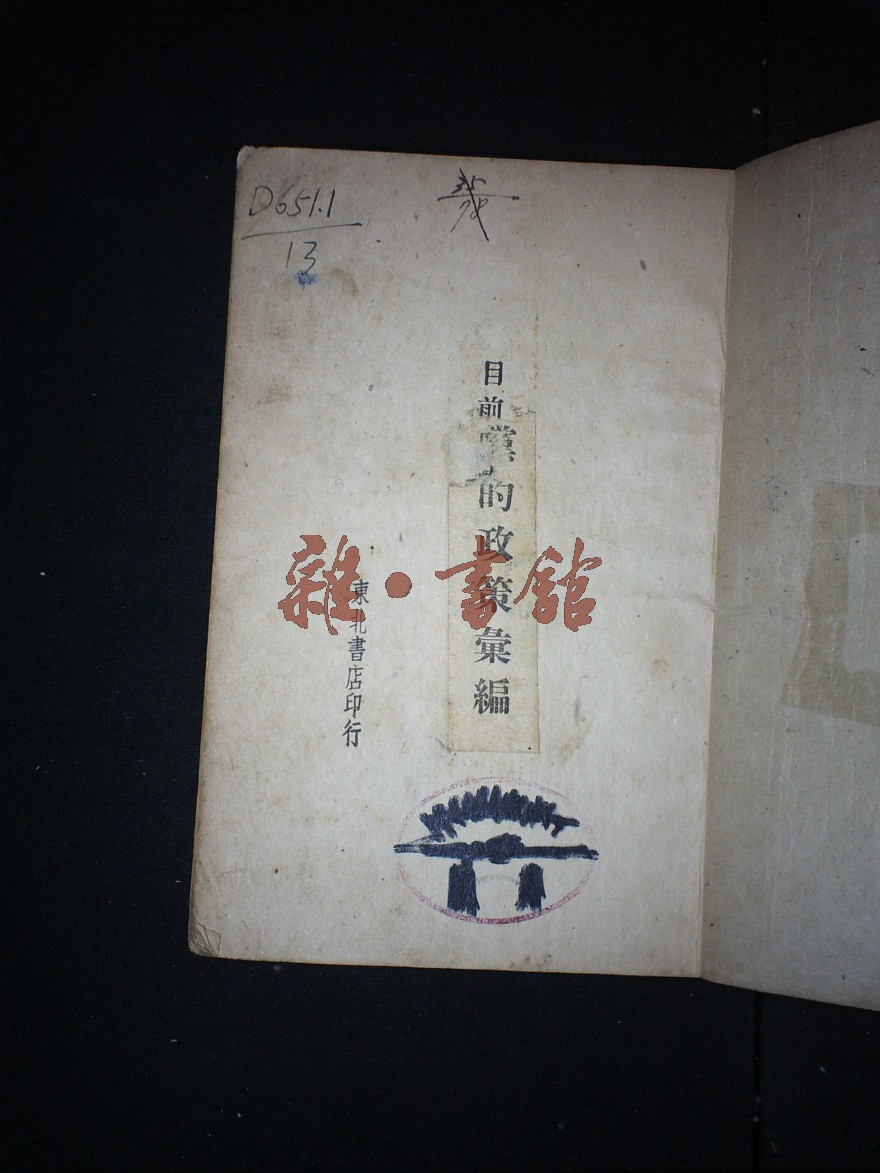 D651.1
13
目前黨的政策彙編
東北書店印行
雜·書館